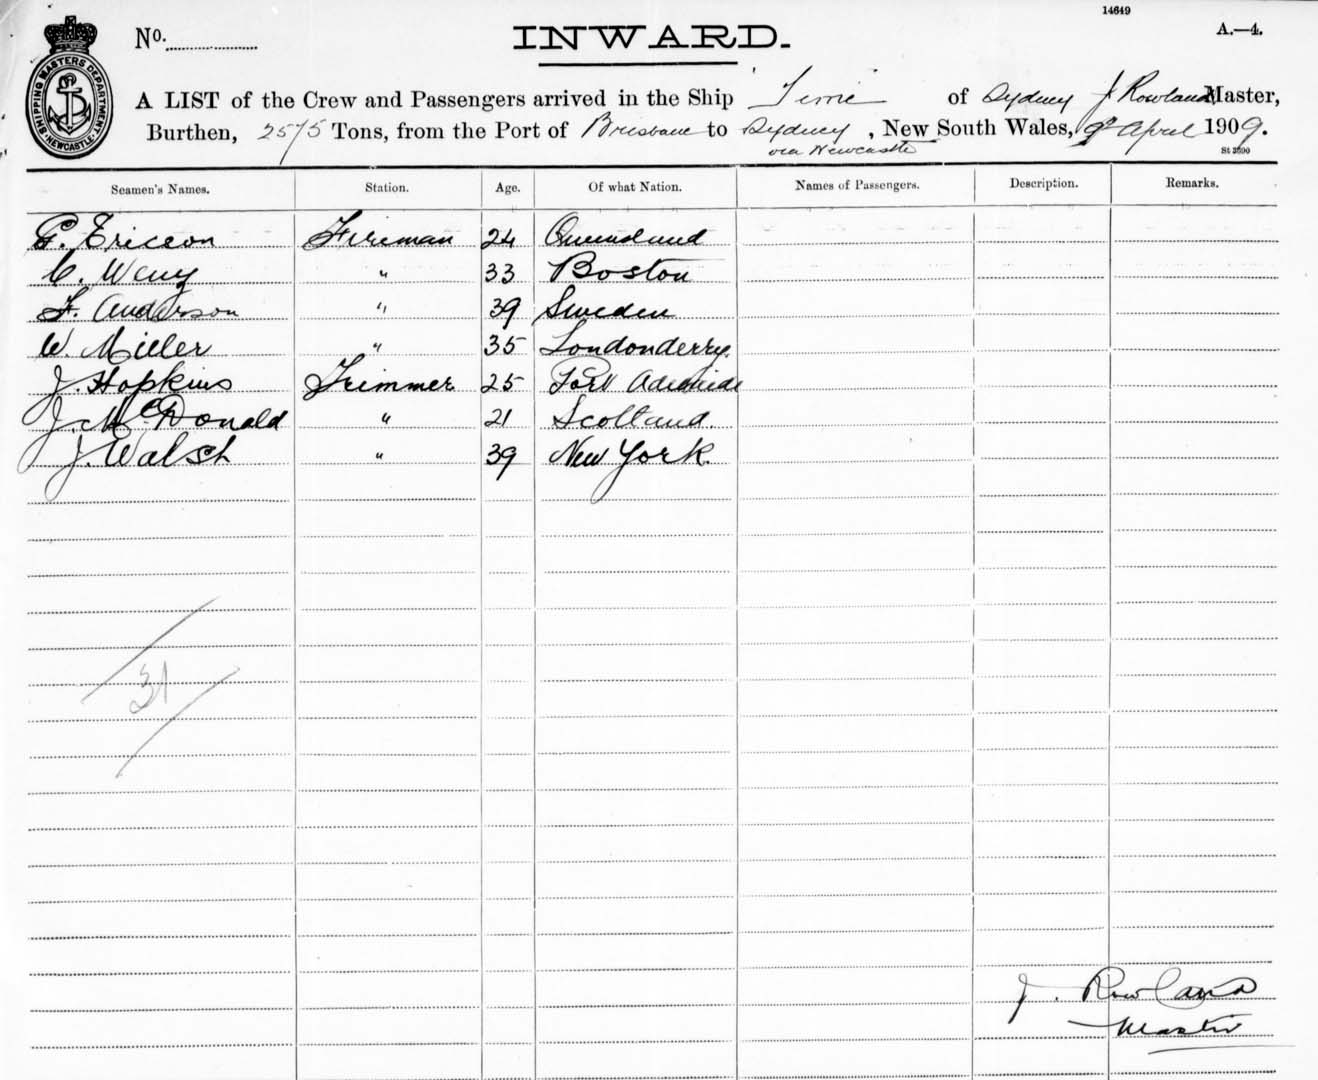 14649
No.
INWARD.
A.—4.
SHIPPING MASTERS DEPARTMENT. NEWCASTLE.
A LIST of the Crew and Passengers arrived in the Ship of Sydney J. Rowland Master,
Burthen, 2575 Tons, from the Port of Brisbane to Sydney, New South Wales, 9th April 1909.
via Newcastle
St 3690
Seamen's Names. Station. Age. Of what Nation. Names of Passengers. Description. Remarks.
G. Ericson Fireman 24 Queensland
C. " 33 Boston
F. Anderson " 39 Sweden
W. Miller " 35 Londonderry.
J. Hopkins Trimmer 25 Port Adelaide
J. McDonald " 21 Scotland.
J. Walsh " 39 New York.
31
J. Rowland
Master